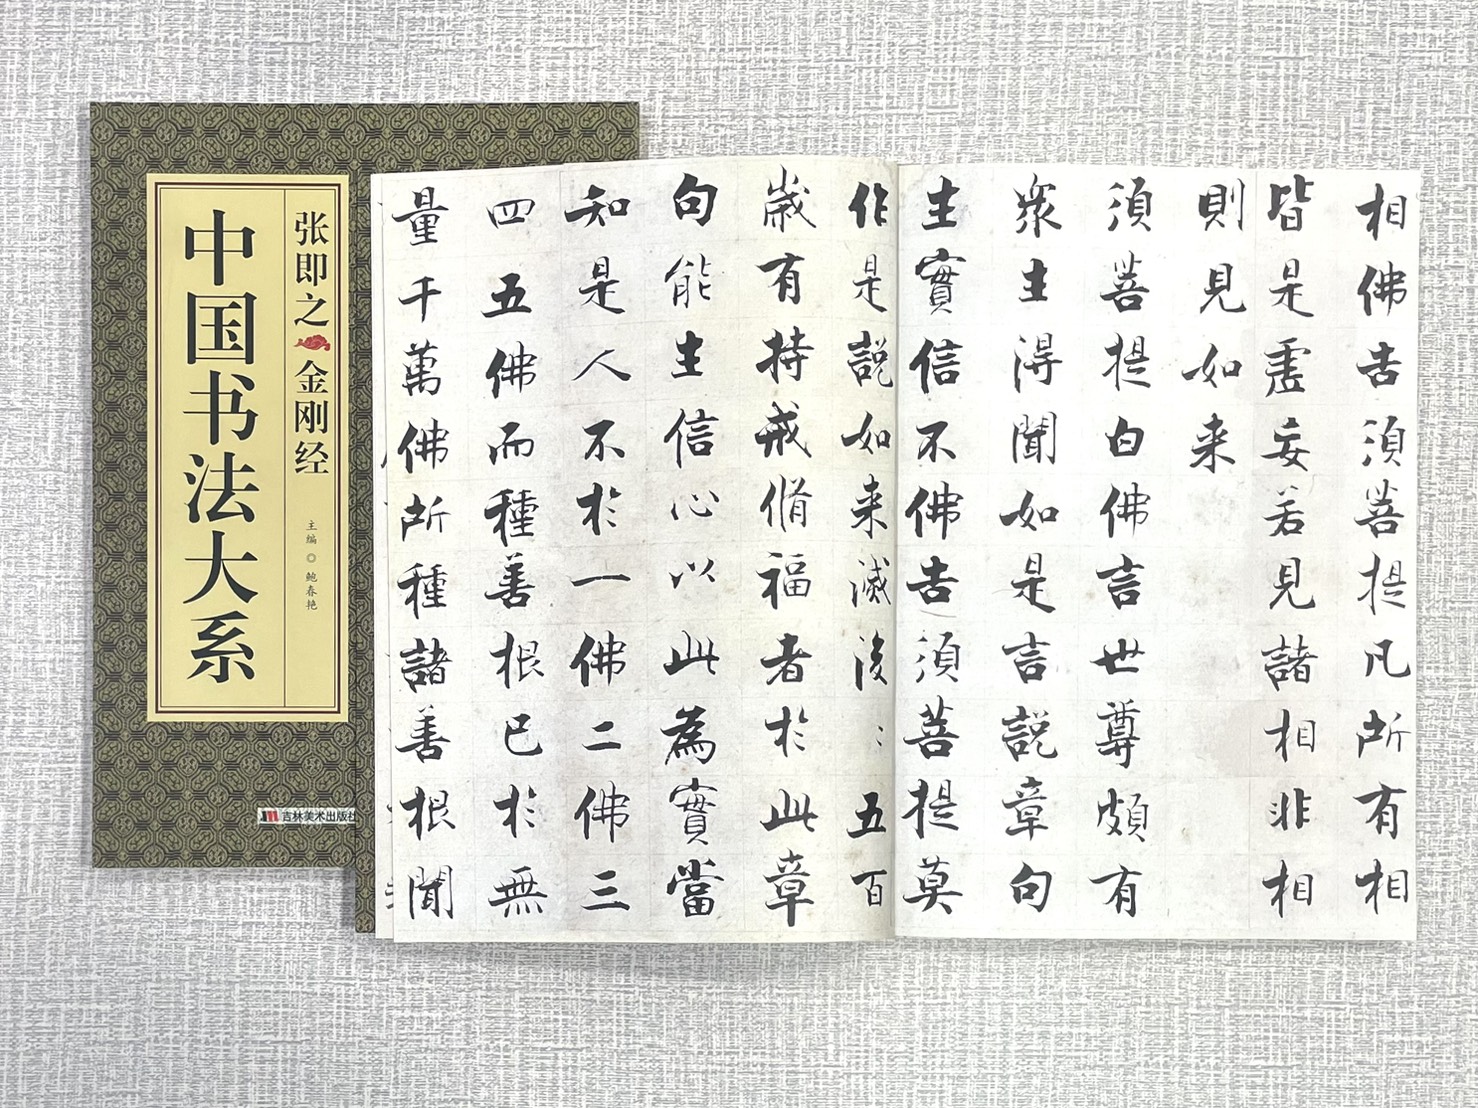 中国书法大系
张即之
金刚经
主编 ◎ 鲍春艳
吉林美术出版社
相佛告須菩提凡所有相
皆是虛妄若見諸相非相
則見如来
須菩提白佛言世尊頗有
衆生得聞如是言説章句
生實信不佛告須菩提莫
作是説如来滅後〻五百
歲有持戒脩福者於此章
句能生信心以此為實當
知是人不於一佛二佛三
四五佛而種善根已於無
量千萬佛所種諸善根聞